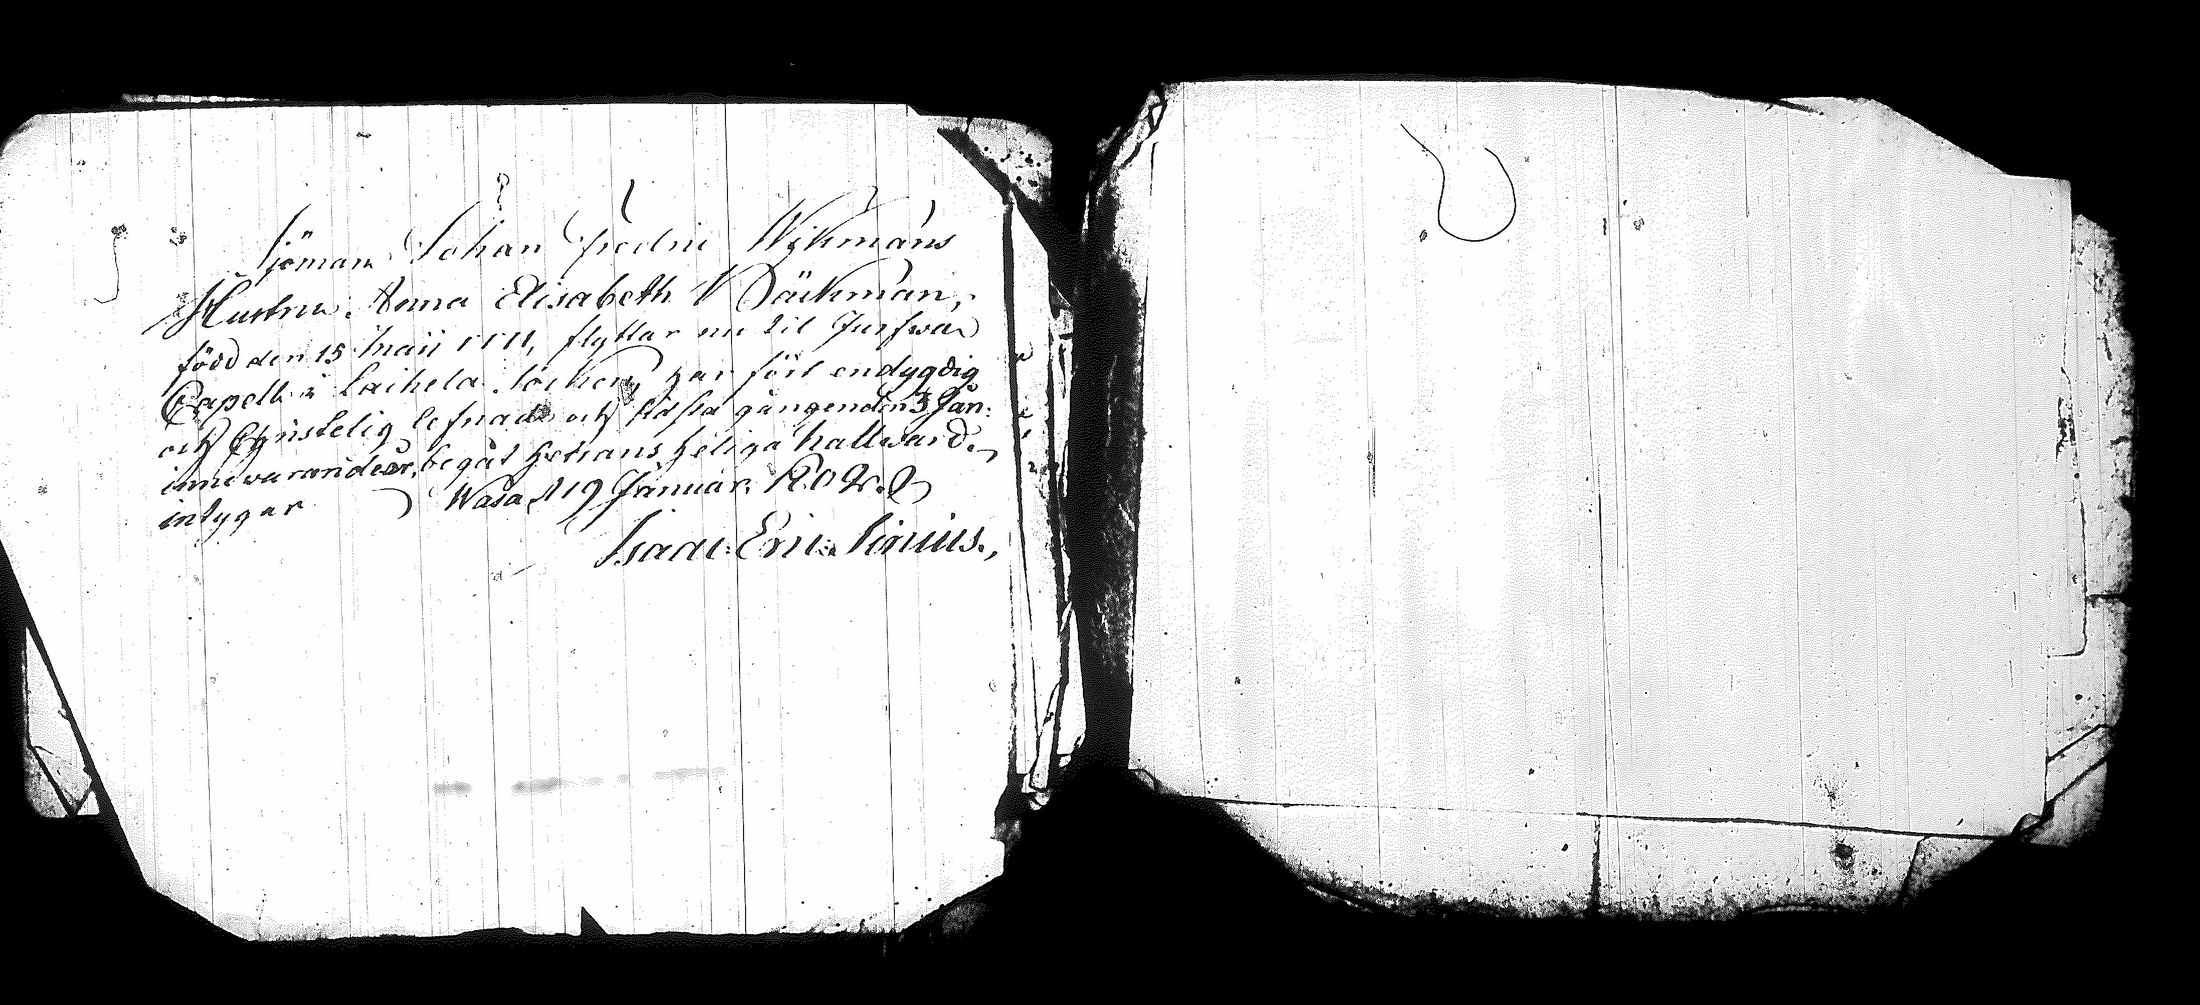 Sjöman Johan Fredric Wikmans
Hustru Anna Elisabeth Bäckman,
född den 15 Maii 1771, flyttar nu til Jurfwa
Capell i Laihela Socken, har fört en dygdig
och Christelig lefnad och sidsta gången den 3 Jan:
innevarande år, begåt Herrans heliga Nattward,
intygar Wasa d 19 Januar. 1802.
Isaac Eric